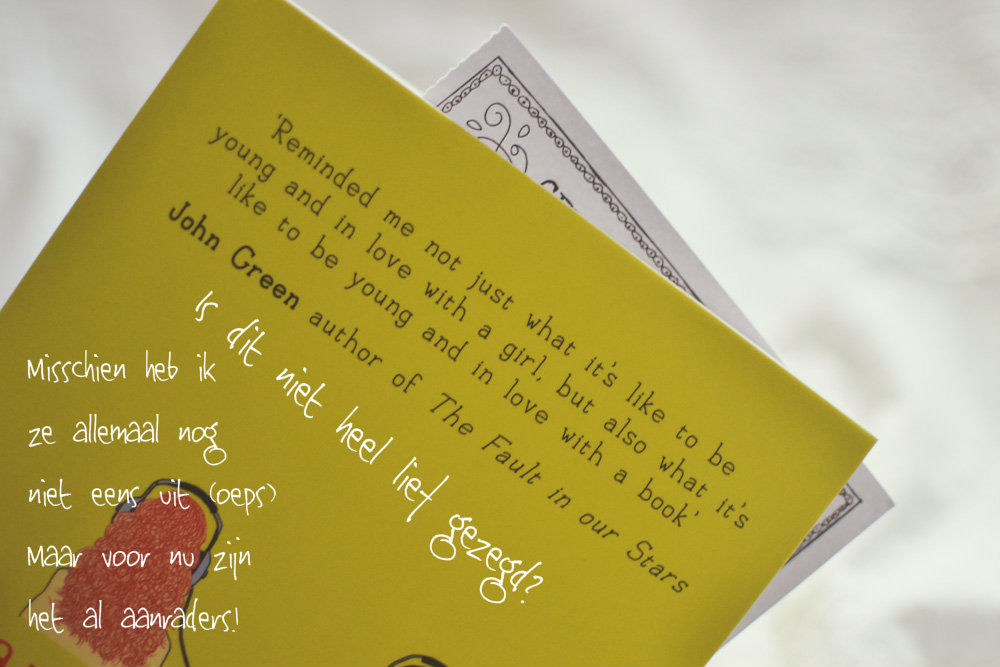 'Reminded me not just what it's like to be
young and in love with a girl, but also what it's
like to be young and in love with a book'
John Green author of The Fault in our Stars
Is dit niet heel lief gezegd?
Misschien heb ik
ze allemaal nog
niet eens uit (oeps)
Maar voor nu zijn
het al aanraders!